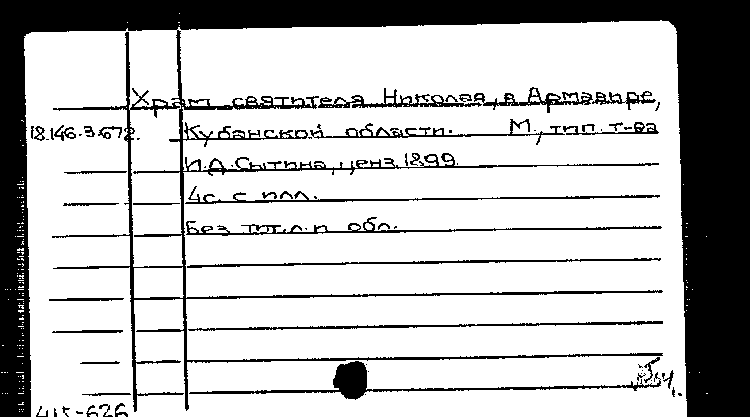 Храм святителя Николая, в Армавире,
18.146.3.672. Кубанской области. М., тип. т-ва
И.Д. Сытина, ценз. 1899
4с. с илл.
Без тит. л. и обл.
415-626